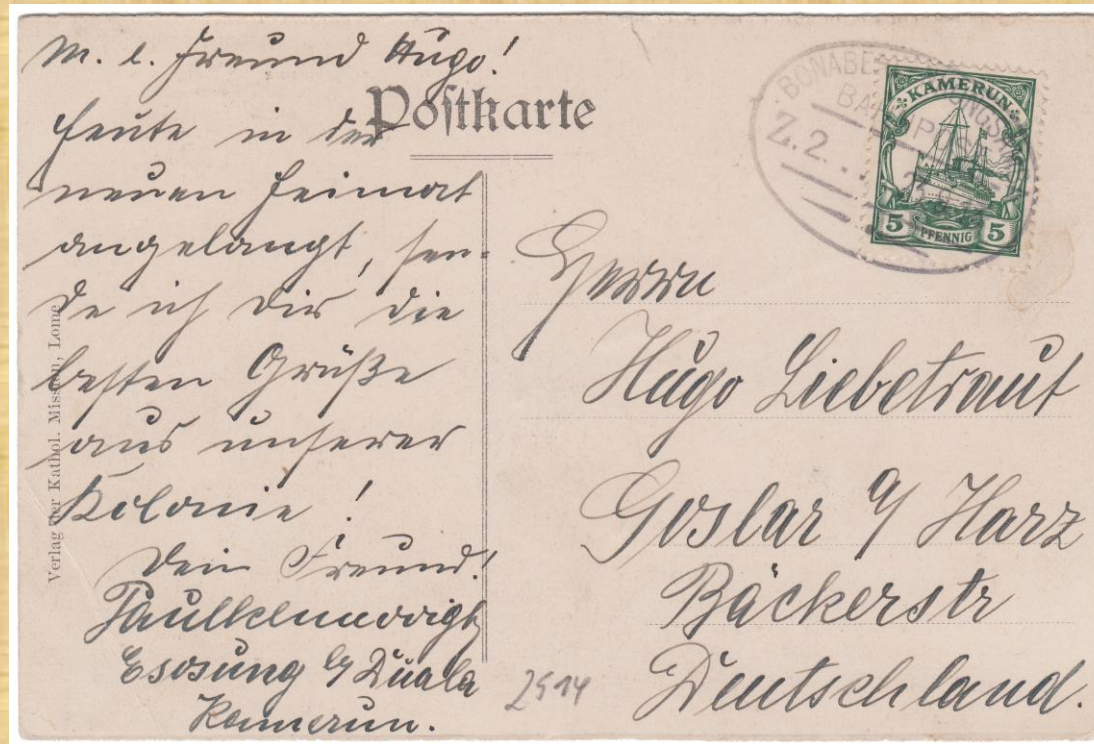 M. l. Freund Hugo!
Heute in der
neuen Heimat
angelangt, sen-
de ich Dir die
besten Grüße
aus unserer
Kolonie!
Dein Freund!
Esosung b/ Duala
Kamerun.
Postkarte
Verlag der Kathol. Mission, Lome
BONABE
BA
Z. 2.
KAMERUN
5 PFENNIG 5
Herrn
Hugo Liebetraut
Goslar a/ Harz
Bäckerstr
Deutschland.
2514